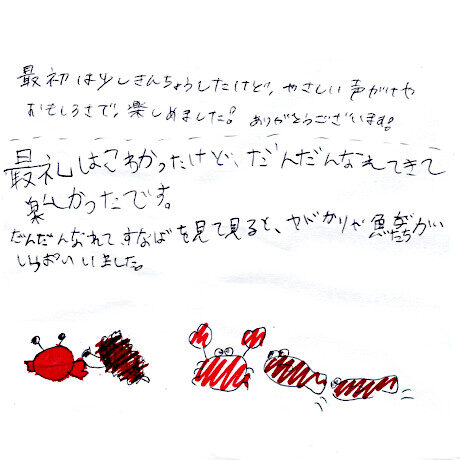 最初は少しきんちょうしたけど、やさしい声がけや
おもしろさで、楽しめました。ありがとうございます。
最礼はこわかったけど、だんだんなれてきて
楽しかったです。
だんだんなれてすなばを見て見ると、ヤドカリや魚たちが
いっぱいいました。